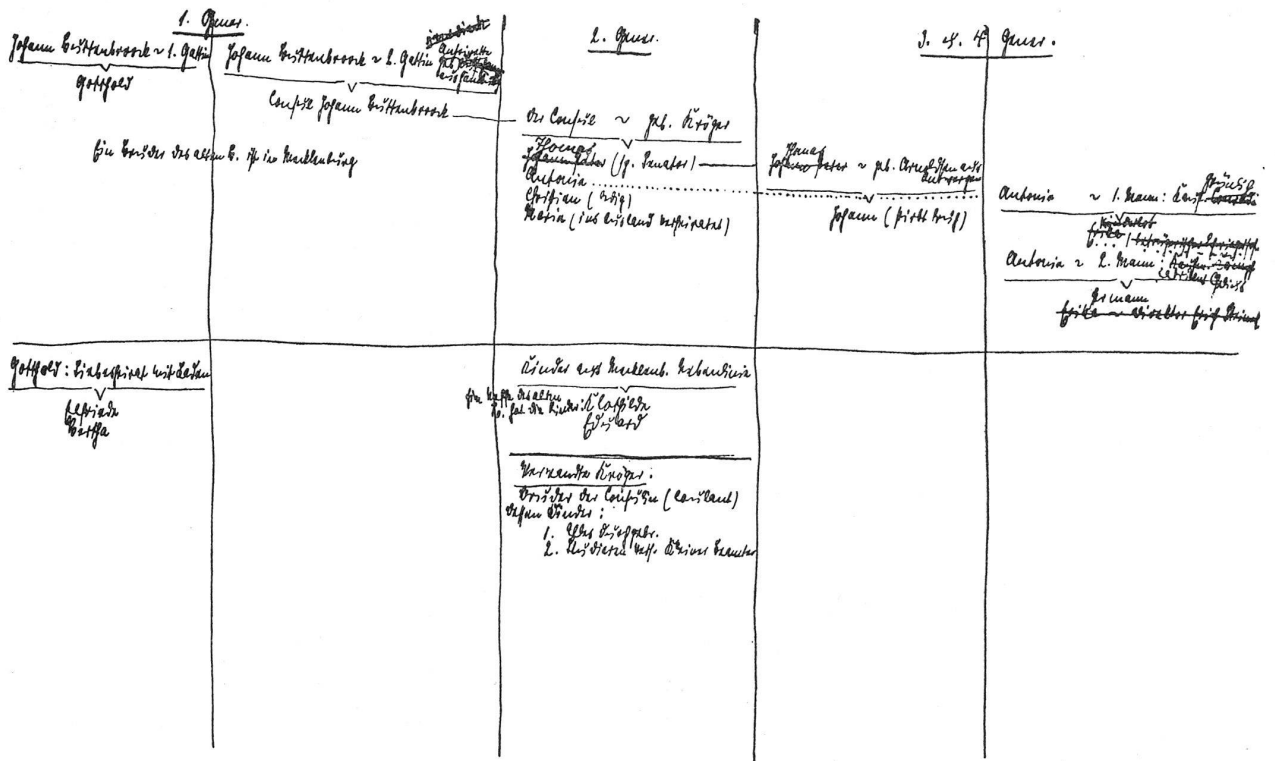 1. Gener.
Johann Buddenbroock ~ 1. Gattin
Gotthold
Johann Buddenbroock ~ 2. Gattin
Antoinette
geb.
aus Hamburg
Consul Johann Buddenbroock
Ein Bruder des alten B. ist in Mecklenburg
2. Gener.
Der Consul ~ geb. Kröger
Thomas
Johann Peter (sp. Senator)
Antonia
Christian (ledig)
Maria (ins Ausland verheiratet)
3. u. 4. Gener.
Thomas
Johann Peter ~ geb. Arnoldsen aus
Antwerpen
Johann (stirbt früh)
Grünlich
Antonia ~ 1. Mann: Kaufm.
Kinderlos
Erika
Antonia ~ 2. Mann:
Permann
Erika ~ Direktor Erich Weinschenk
Gotthold: Liebesheirat mit Laden
Elfriede
Bertha
Kinder aus Mecklenb. Nebenlinie
Ein Neffe des alten
B. hat die Kinder: Klothilde
Eduard
Verwandte Kröger:
Bruder der Consulin (coulant)
Dessen Kinder:
1. Etwas durchgebr.
2. Studieren verf. Kleiner Beamter